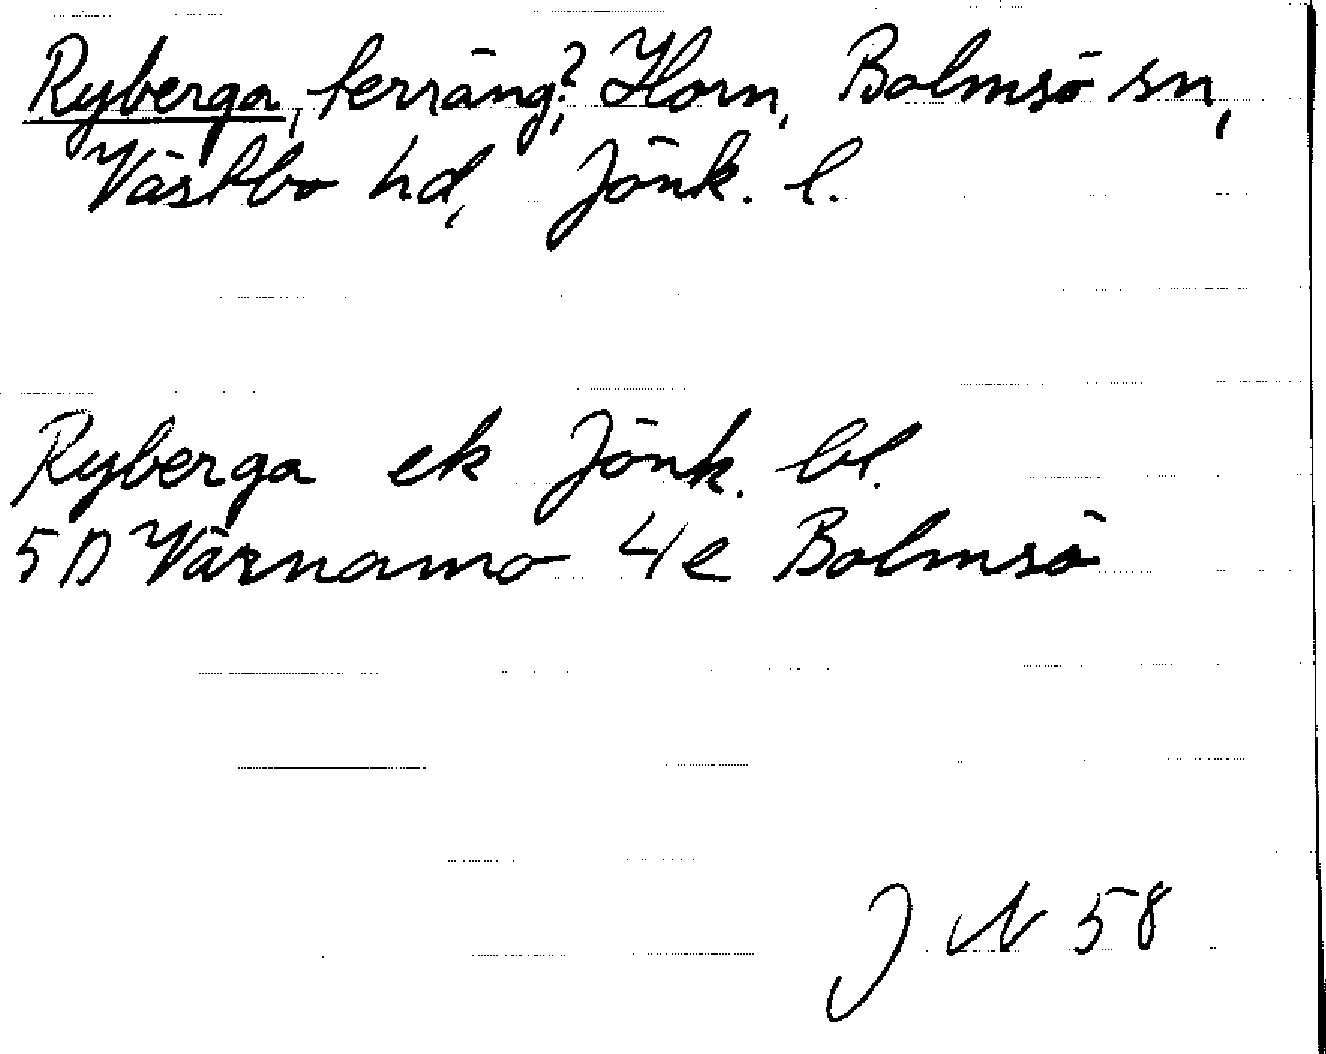 Ryberga, terräng?, Horn, Bolmsö sn,
Västbo hd, Jönk. l.
Ryberga ek Jönk. bl.
5D Värnamo 4e Bolmsö
J N 58